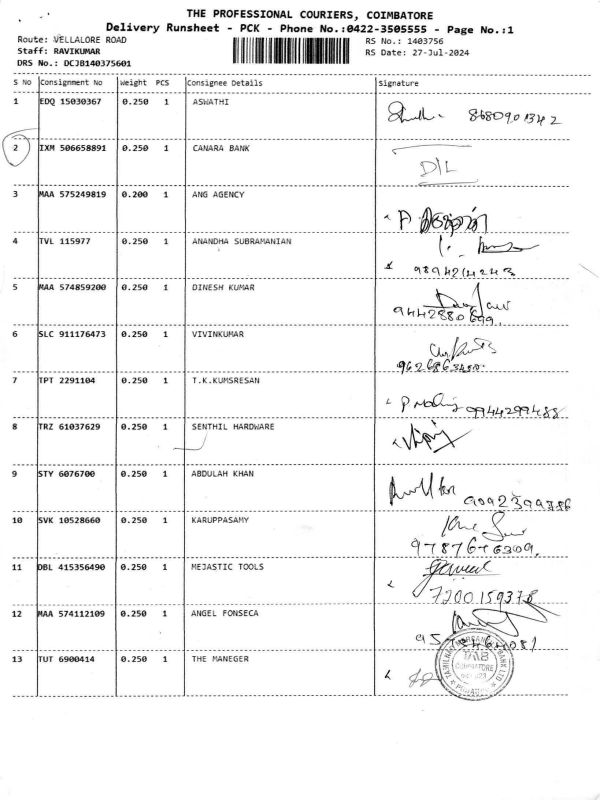 THE PROFESSIONAL COURIERS, COIMBATORE
Delivery Runsheet - PCK - Phone No.:0422-3505555 - Page No.:1
Route: VELLALORE ROAD RS No.: 1403756
Staff: RAVIKUMAR RS Date: 27-Jul-2024
DRS No.: DCJB140375601
S No Consignment No Weight PCS Consignee Details Signature
1 EDQ 15030367 0.250 1 ASWATHI
2 IXM 506658891 0.250 1 CANARA BANK D/L
3 MAA 575249819 0.200 1 ANG AGENCY
4 TVL 115977 0.250 1 ANANDHA SUBRAMANIAN
5 MAA 574859200 0.250 1 DINESH KUMAR
9442880699.
6 SLC 911176473 0.250 1 VIVINKUMAR
7 TPT 2291104 0.250 1 T.K.KUMSRESAN 9944299488
8 TRZ 61037629 0.250 1 SENTHIL HARDWARE
9 STY 6076700 0.250 1 ABDULAH KHAN
10 SVK 10528660 0.250 1 KARUPPASAMY
11 DBL 415356490 0.250 1 MEJASTIC TOOLS
7200159378
12 MAA 574112109 0.250 1 ANGEL FONSECA
13 TUT 6900414 0.250 1 THE MANEGER
COIMBATORE